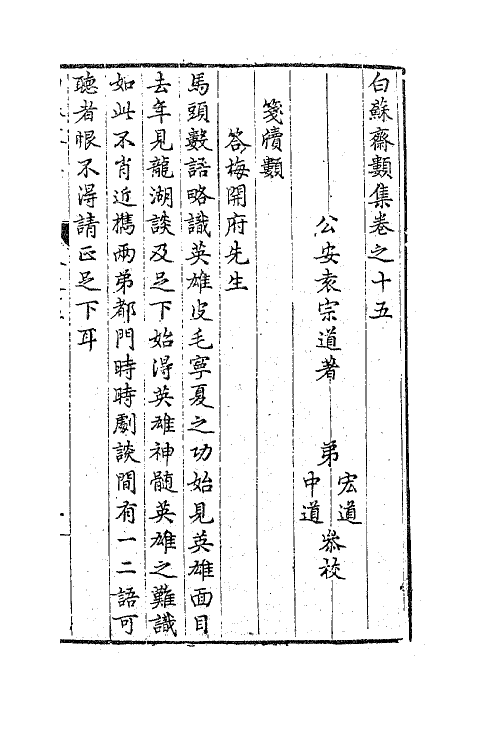 白蘇齋類集卷之十五
公安袁宗道著 弟 宏道 中道 叅校
箋牘類
答梅開府先生
馬頭數語略識英雄皮毛寧夏之功始見英雄面目
去年見龍湖談及足下始得英雄神髓英雄之難識
如此不肖近携兩弟都門時時劇談間有一二語可
聽者恨不得請正足下耳